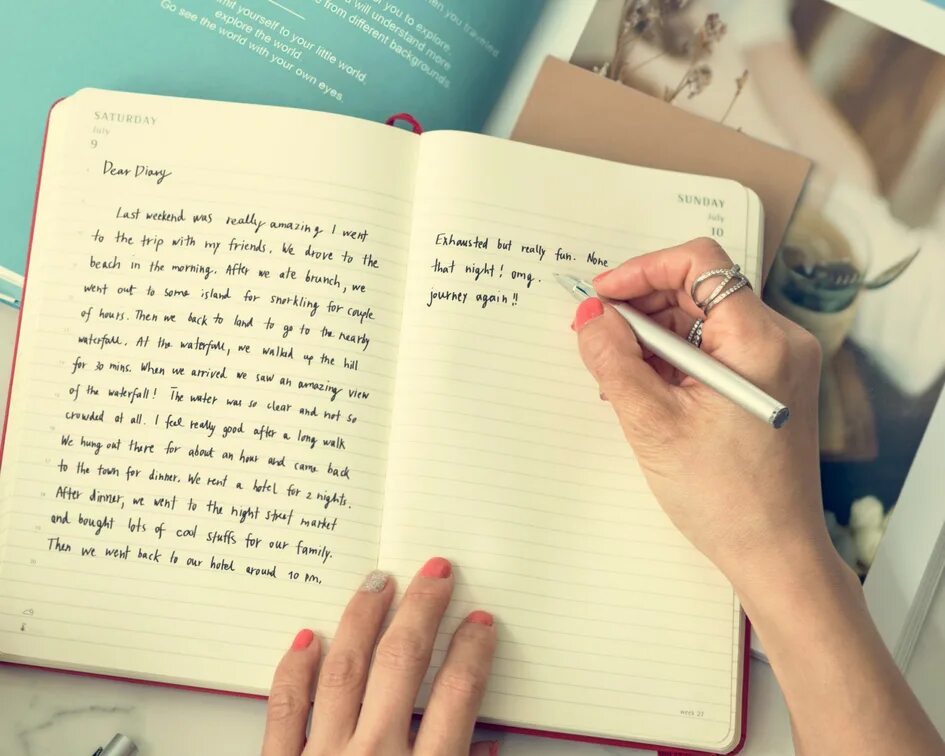 when you travelled.
you to explore,
will understand more
from different backgrounds.
yourself to your little world.
explore the world.
Go see the world with your own eyes.
SATURDAY
July
9
Dear Diary
Last weekend was really amazing I went
to the trip with my friends. We drove to the
beach in the morning. After we ate brunch, we
went out to some island for snorkling for couple
of hours. Then we back to land to go to the nearby
waterfall. At the waterfall, we walked up the hill
for 30 mins. When we arrived we saw an amazing view
of the waterfall! The water was so clear and not so
crowded at all. I feel really good after a long walk
We hung out there for about an hour and came back
to the town for dinner. We rent a hotel for 2 nights.
After dinner, we went to the night street market
and bought lots of cool stuffs for our family.
Then we went back to our hotel around 10 pm.
SUNDAY
July
10
Exhausted but really fun. None
that night! omg.
journey again!!
week 27